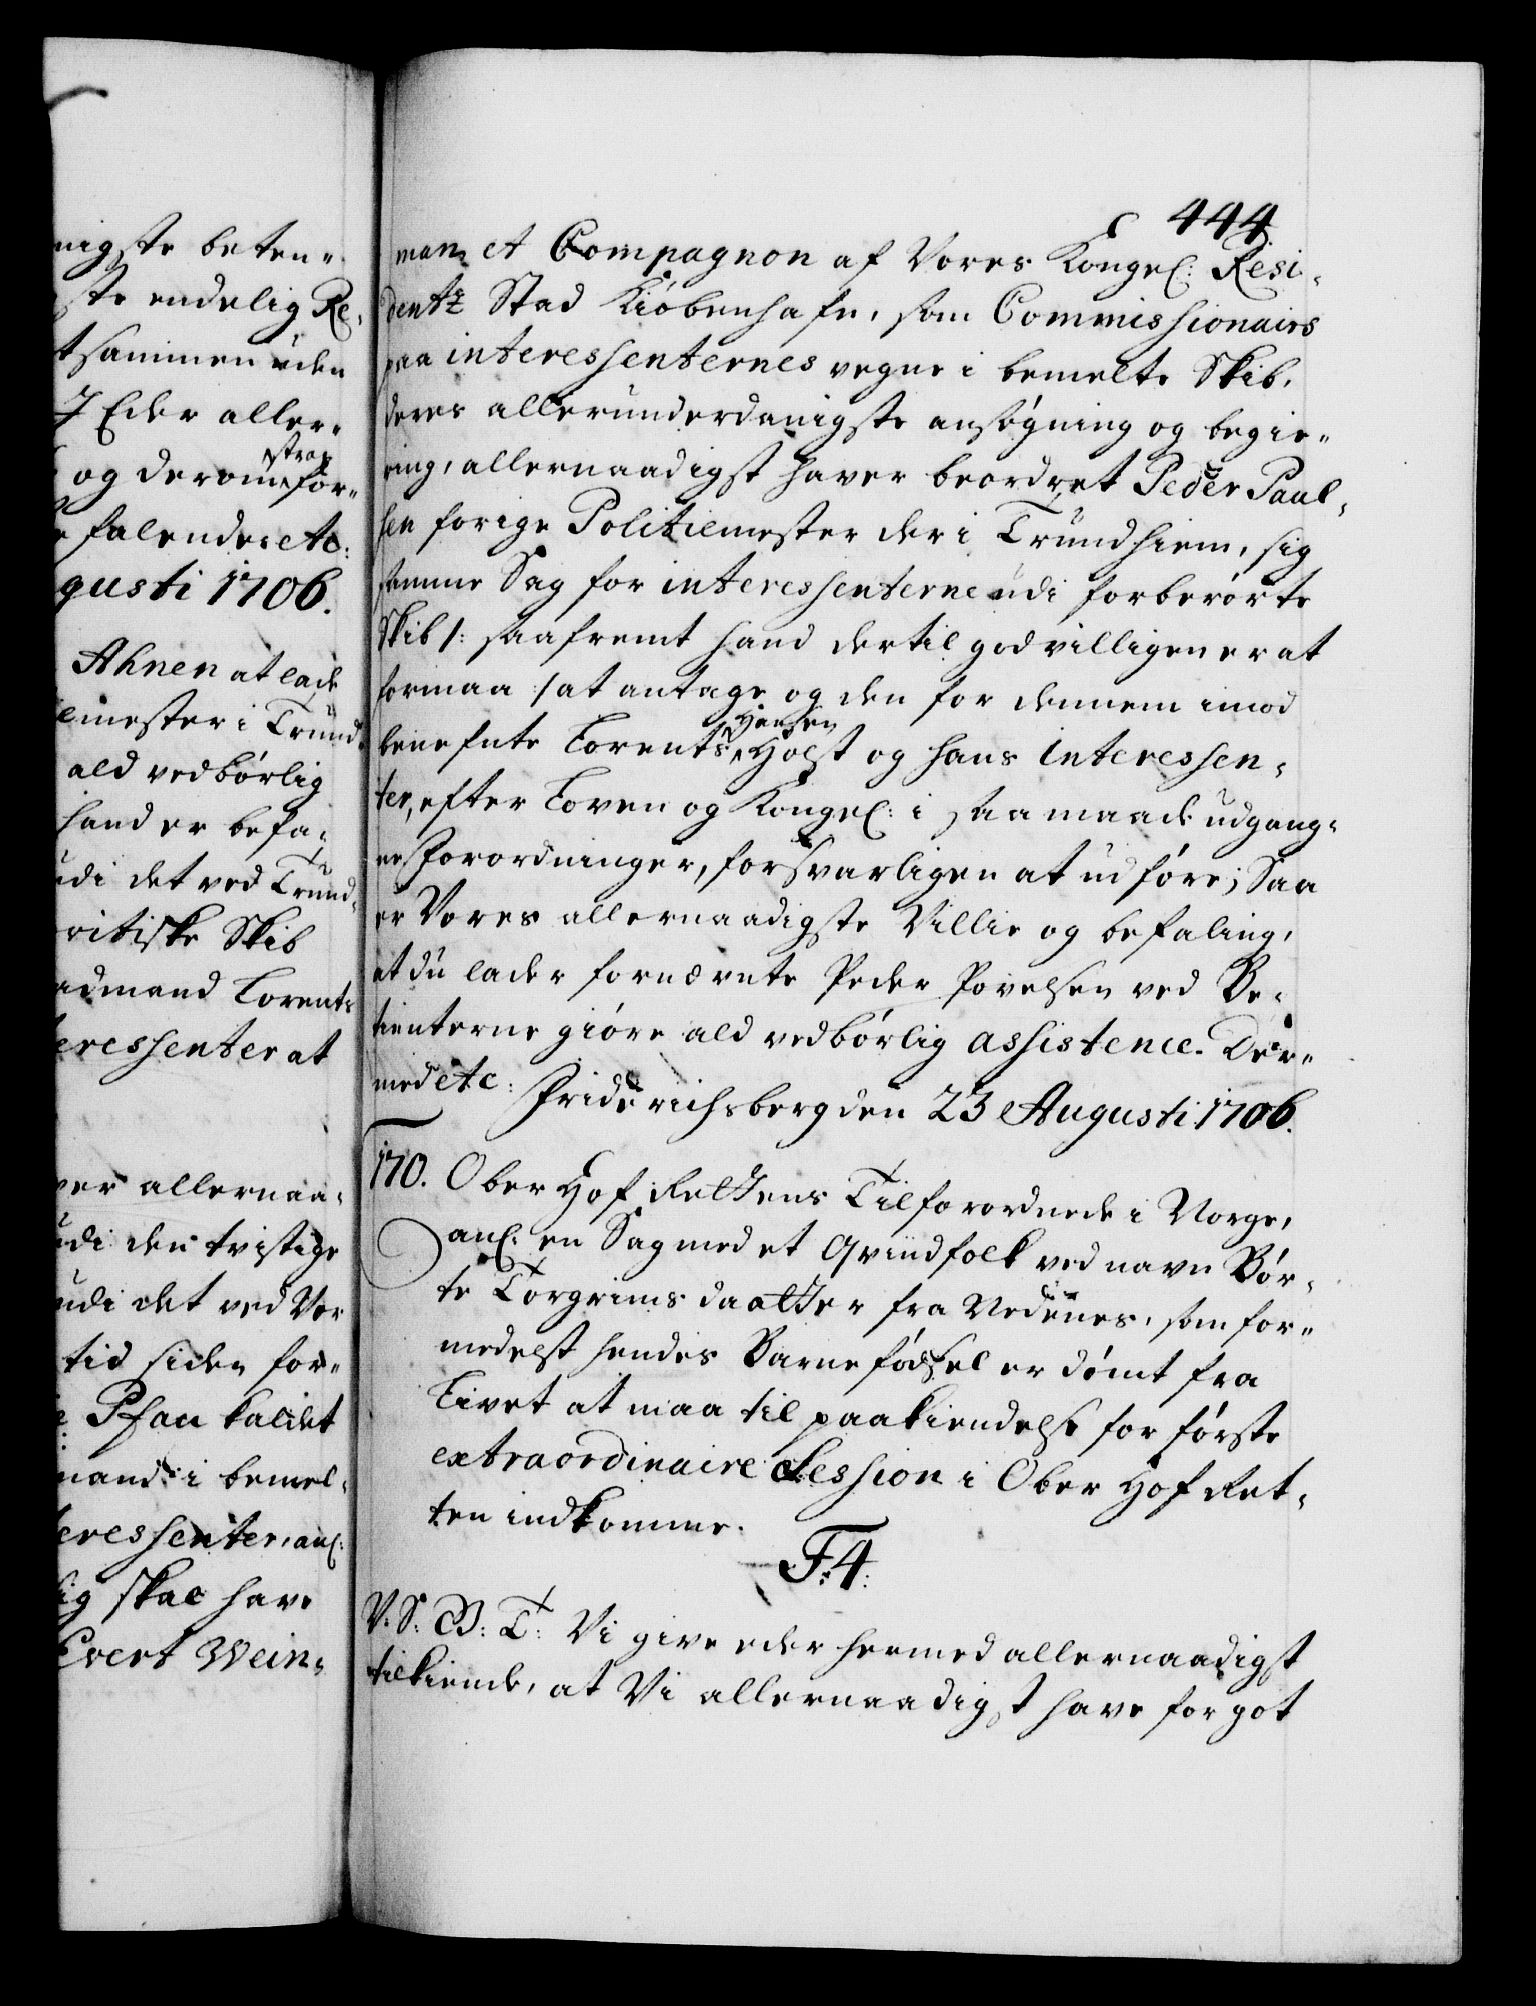 nigste beten-
ste endelig Re-
tsammen uden
I Eder aller-
og derom strax for-
befalendes etc:
gusti 1706.
Ahnen at lade
emester i Trund-
ald vedbørlig
hand er befa-
udi det ved Trund-
ritiske Skib
admand Lorents
eressenter at
ver allernaa-
udi den tvistige
udi det ved Vor
tid siden for-
Pfau kaldet
mand i bemel-
eressenter, anl:
lig skal have
Evert Wein-
444
man et Compagnon af Vores Kongel: Resi-
dentz Stad Kiøbenhafn, som Commissionairs
paa interessenternes vegne i bemelte Skib,
deres allerunderdanigste ansøgning og begie-
ring, allernaadigst haver beordret Peder Paul-
sen forige Politiemester der i Trundhiem, sig
samme Sag for interessenterne udi forberørte
Skib /: saafremt hand dertil godvilligen er at
formaa / at antage og den for dennem imod
benefnte Lorents Hansen Holst og hans interessen-
ter, efter Loven og Kongel: i saa maade udgang-
ne Forordninger, forsvarligen at udføre; Saa
er Vores allernaadigste Villie og befaling,
at du lader fornævnte Peder Povelsen ved Be-
tienterne giøre ald vedbørlig assistence. Der-
med etc: Friderichsberg den 23 Augusti 1706.
170. Ober Hof Rettens Tilforordnede i Norge,
anl: en Sag med et Qvindfolk ved navn Bør-
te Torgrims daatter fra Nedenes, som for-
medelst hendes Barnefødsel er dømt fra
Livet at maa til paakiendelse for første
extraordinaire Session i Ober Hof Ret-
ten indkomme.
F. 4:
V: S: G: T: Vi give eder hermed allernaadigst
tilkiende, at Vi allernaadigst have for got